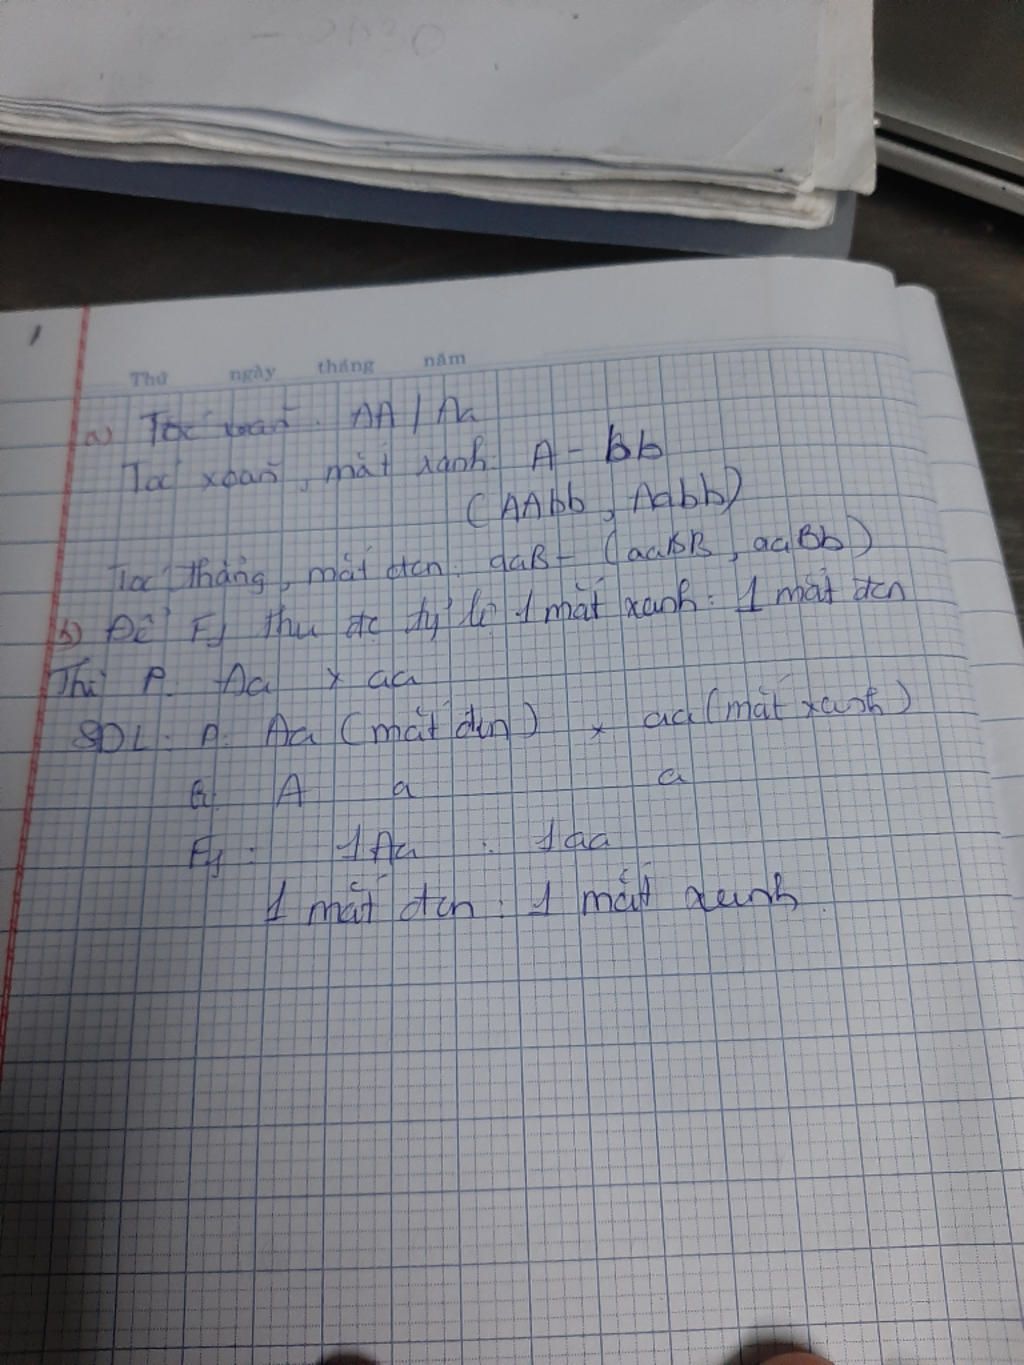 Thứ ngày tháng năm
a) Tóc xoăn. AA / Aa
Tóc xoăn, mắt xanh. A - bb
(AAbb, Aabb)
Tóc thẳng, mắt đen. aaB - (aaBB, aaBb)
b) Để F1 thu đc tỷ lệ 1 mắt xanh : 1 mắt đen
Thì P. Aa x aa
SDL: P. Aa (mắt đen) x aa (mắt xanh)
G. A a a
F1: 1Aa : 1aa
1 mắt đen : 1 mắt xanh.